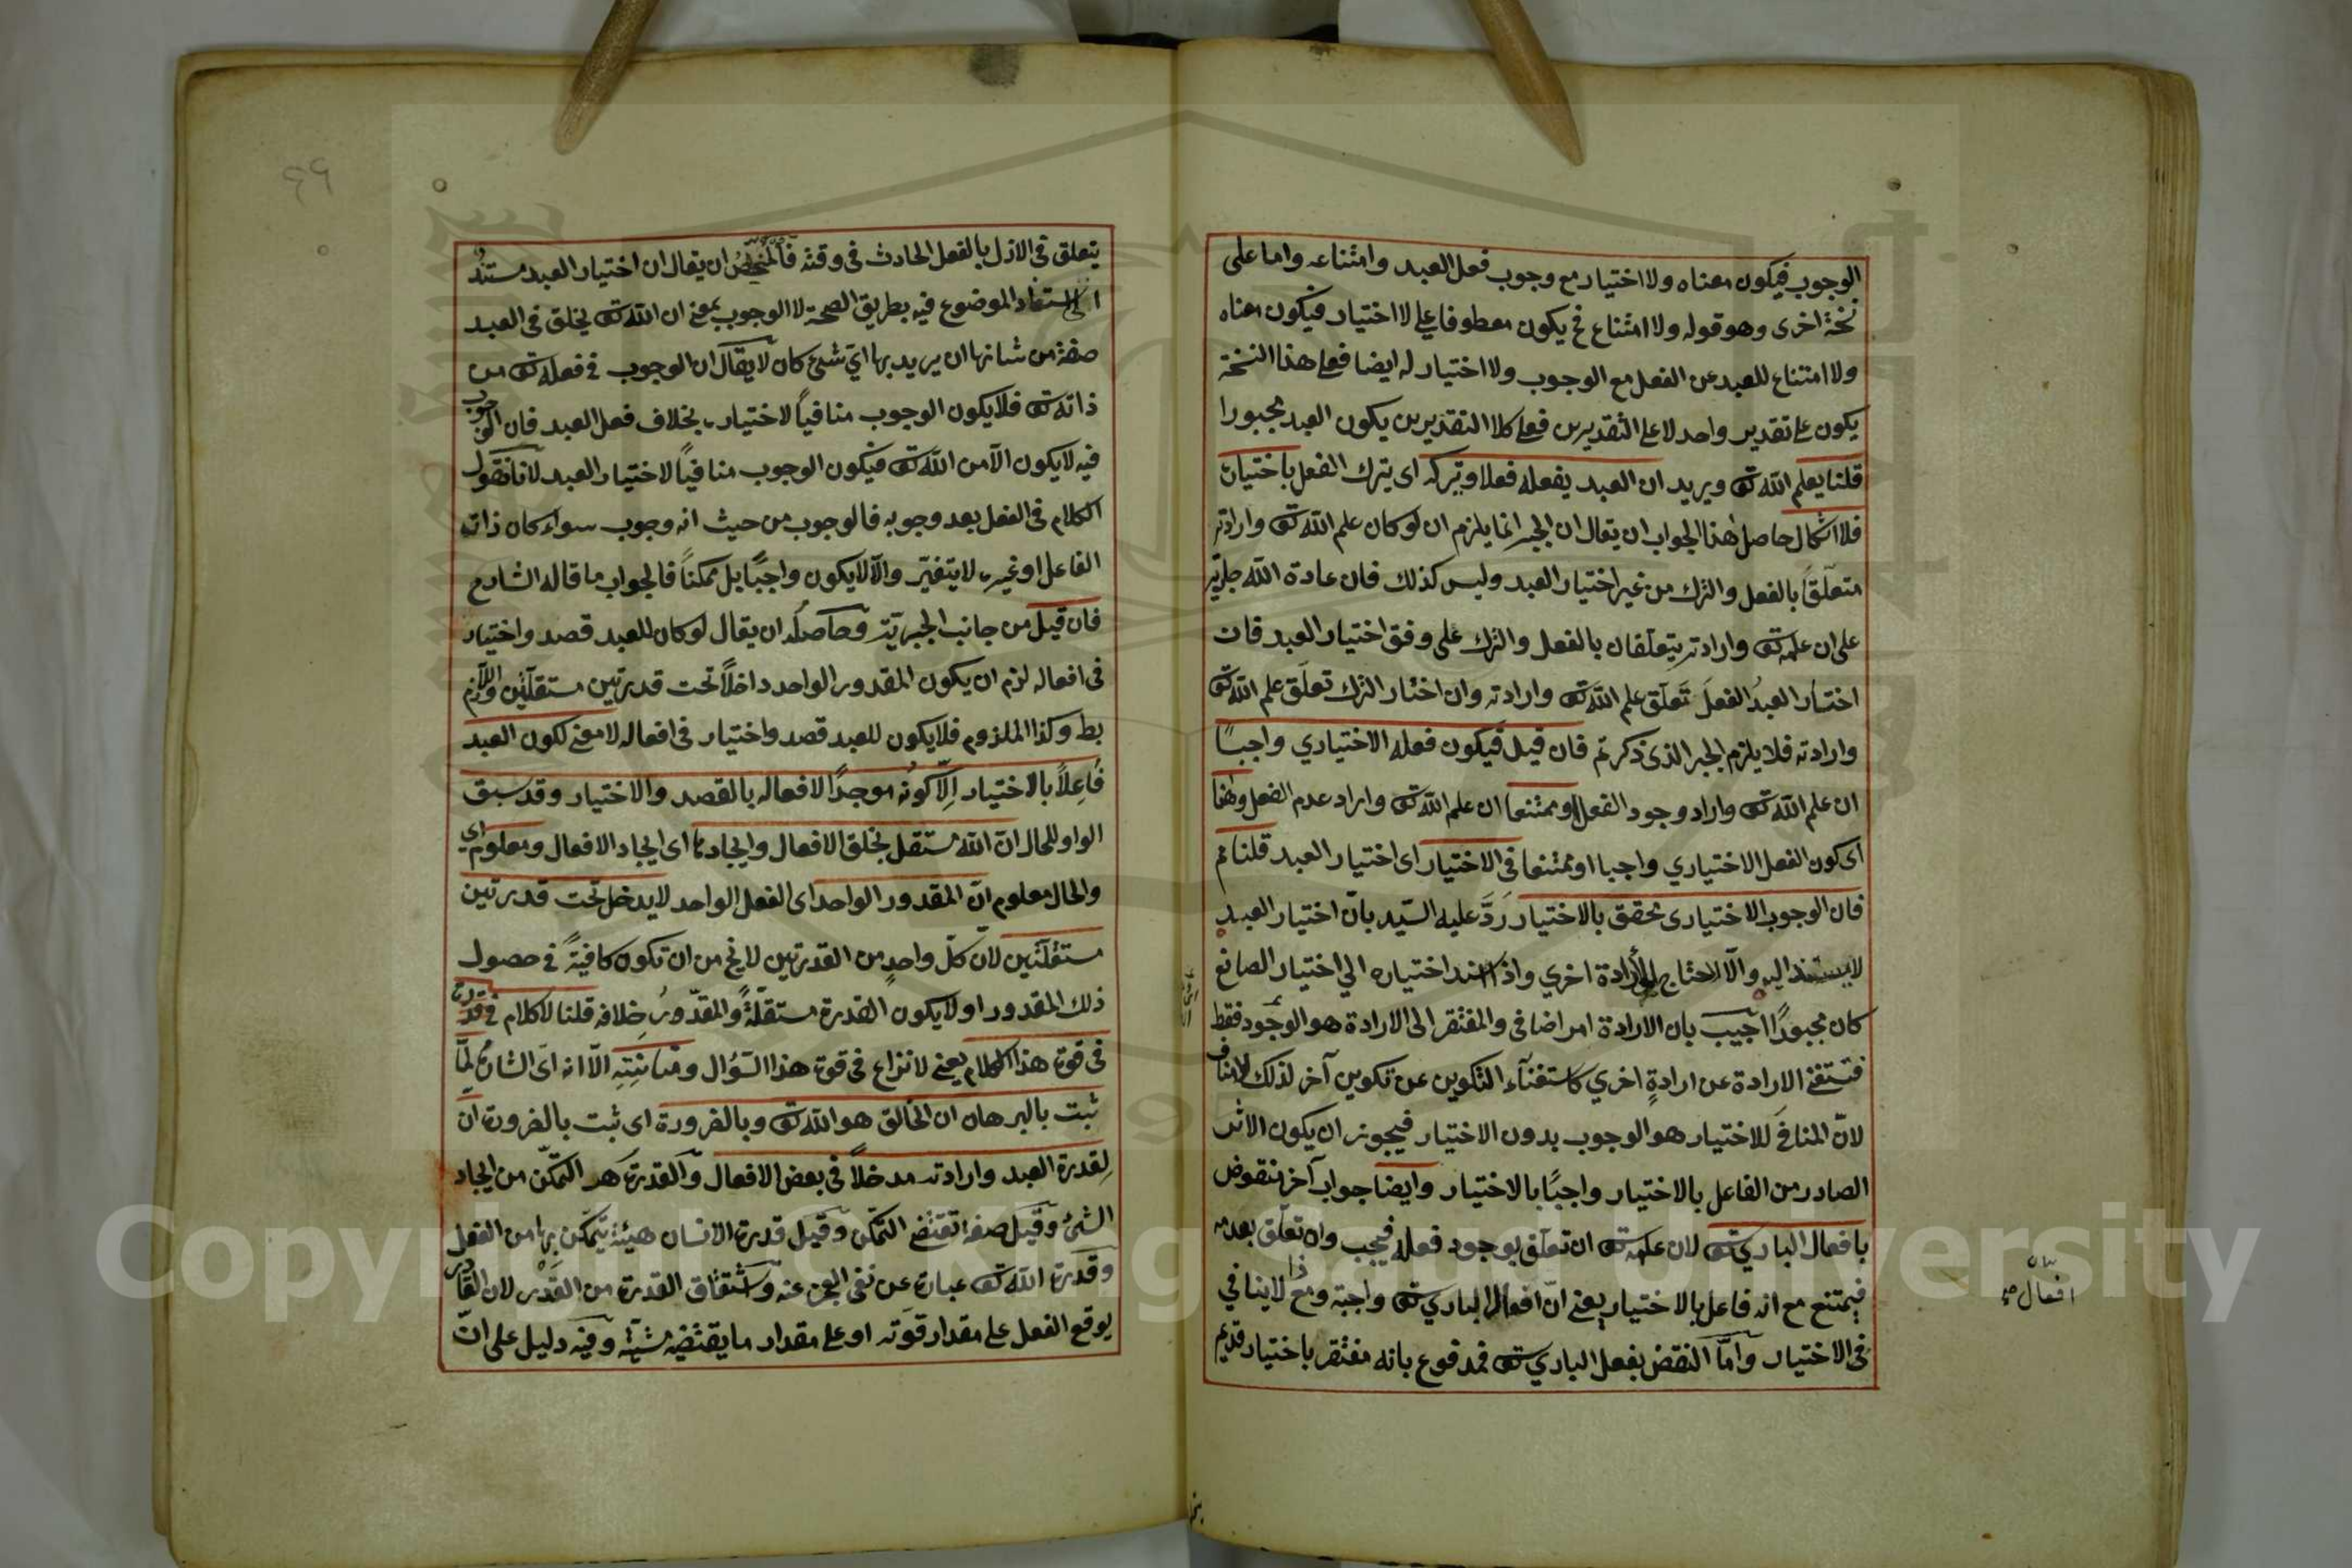 الوجوب فيكون معناه ولا اختيار مع وجوب فعل العبد وامتناعه واما على
نسخة اخرى وهو قوله ولا امتناع فح يكون معطوفا على لا اختيار فيكون معناه
ولا امتناع للعبد عن الفعل مع الوجوب ولا اختيار له ايضا فعلى هذا النسخة
يكون على تقدير واحد لا على التقديرين فعلى كلا التقديرين يكون العبد مجبورا
قلنا يعلم الله تع ويريد ان العبد يفعله فعلا ويتركه اى يترك الفعل باختياره
فلا اشكال حاصل هذا الجواب ان يقال ان الجبر انما يلزم ان لو كان علم الله تع وارادته
متعلقا بالفعل والترك من غير اختيار العبد وليس كذلك فان عادة الله جارية
على ان علمه تع وارادته يتعلقان بالفعل والترك على وفق اختيار العبد فان
اختار العبد الفعل تعلق علم الله تع وارادته وان اختار الترك تعلق علم الله تع
وارادته فلا يلزم الجبر الذى ذكرتم فان قيل فيكون فعله الاختياري واجبًا
ان علم الله تع واراد وجود الفعل او ممتنعا ان علم الله تع واراد عدم الفعل وهذا
اى كون الفعل الاختياري واجبا او ممتنعا فى الاختيار اى اختيار العبد قلنا مم
فان الوجوب الاختيارى محقق بالاختيار رَدَّ عليه السّيد بانّ اختيار العبد
لا يستند اليه والّا لاحتاج الى ارادة اخري واذا اسند اختياره الي اختيار الصانع
كان مجبورًا اجيب بان الارادة امر اضافى والمفتقر الى الارادة هو الوجود فقط
فتستغنى الارادة عن ارادةٍ اخري كاستغنآء التكوين عن تكوين آخر لذلك
لانّ المنافى للاختيار هو الوجوب بدون الاختيار فيجوز ان يكون الاثر
الصادر من الفاعل بالاختيار واجبًا بالاختيار وايضا جواب آخر منقوض
بافعال الباري تع لان علمه تع ان تعلق بوجود فعله فيجب وان تعلق بعدمه
فيمتنع مع انه فاعل بالاختيار يعنى انّ افعال الباري تع واجبة ومع ذا لا ينافي
فى الاختيار وامّا النقض بفعل الباري تع فمدفوع بانه مفتقر باختيار قديم
افعال صح
يتعلق فى الازل بالفعل الحادث فى وقته ان يقال ان اختيار العبد مستند
الموضوع فيه بطريق الصحة لا الوجوب بمعنى ان الله تع يخلق فى العبد
صفة من شانها ان يريد بها اي شئ كان لا يقال ان الوجوب فى فعله تع من
ذاته تع فلا يكون الوجوب منافيًا لاختياره بخلاف فعل العبد فان الوجوب
فيه لا يكون الّا من الله تع فيكون الوجوب منافيًا لاختيار العبد لانا نقول
الكلام فى الفعل بعد وجوبه فالوجوب من حيث انه وجوب سواء كان ذات
الفاعل او غيره لا يتغيّر والّا لا يكون واجبًا بل ممكنًا فالجواب ما قاله الشارح
فان قيل من جانب الجبرية وحاصله ان يقال لو كان للعبد قصد واختيار
فى افعاله لزم ان يكون المقدور الواحد داخلًا تحت قدرتين مستقلتين واللازم
بط وكذا الملزوم فلا يكون للعبد قصد واختيار فى افعاله لا معنى لكون العبد
فاعلًا بالاختيار الّا كونُه موجدًا لافعاله بالقصد والاختيار وقد سبق
الواو للحال انّ الله مستقل بخلق الافعال وايجادها اى ايجاد الافعال ومعلوم اي
والحال معلوم انّ المقدور الواحد اى الفعل الواحد لا يدخل تحت قدرتين
مستقلتين لانّ كلّ واحدٍ من القدرتين لا يخ من ان تكون كافيةً فى حصول
ذلك المقدور او لا يكون القدرة مستقلّةً والمقدّورُ خلافه قلنا لا كلام فى قوة
فى قوة هذا الكلام يعنى لا نزاع فى قوة هذا السّؤال ومتانتِه الّا انه اى الشان لمّا
ثبت بالبرهان ان الخالق هو الله تع وبالضرورة اى ثبت بالضرورة ان
لقدرة العبد وارادته مدخلًا فى بعض الافعال والقدرة هو التمكّن من ايجاد
الشئ وقيل صفة تقتضى التمكّن وقيل قدرة الانسان هيئة يتمكن بها من الفعل
وقدرة الله تع عبارة عن نفى العجز عنه واشتقاق القدرة من القَدْر لان القادر
يوقع الفعل على مقدار قوّته او على مقدار ما يقتضيه مشيته وفيه دليل على انّ
Copyright © King Saud University